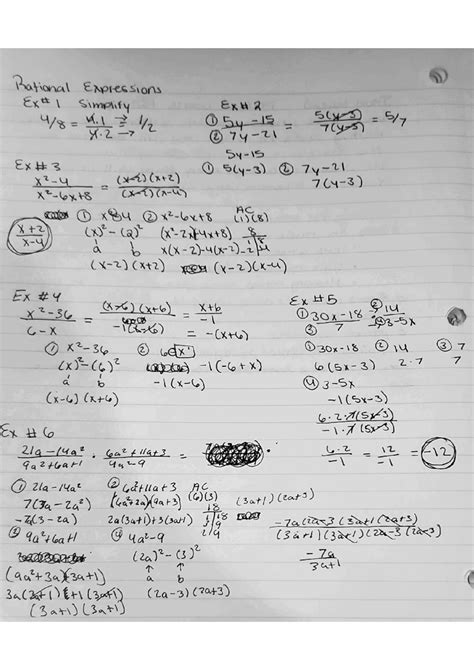 Rational Expressions
Ex# 1 Simplify
4/8 = 4·1 → / 4·2 → = 1/2
Ex# 2
① 5y-15 / ② 7y-21 = 5(y-3) / 7(y-3) = 5/7
5y-15
① 5(y-3) ② 7y-21
7(y-3)
Ex # 3
x²-4 / x²-6x+8 = (x-2)(x+2) / (x-2)(x-4)
x+2 / x-4
② x²-6x+8
AC
(1)(8)
(x)² - (2)²
(x²-2x)(-4x+8)
a b
x(x-2)-4(x-2)
(x-2)(x+2)
(x-2)(x-4)
Ex #4
x²-36 / 6-x = (x-6)(x+6) / -1(x-6) = x+6 / -1
= -(x+6)
① x²-36
(x)²-(6)²
a b
(x-6)(x+6)
②
-1(-6+x)
-1(x-6)
Ex #5
① 30x-18 / ③ 7 ÷ ② 14 / ④ 3-5x
① 30x-18 ② 14 ③ 7
6(5x-3) 2·7 7
④ 3-5x
-1(5x-3)
6·2·7(5x-3) / -1·7(5x-3)
6·2 / -1 = 12 / -1 = -12
Ex # 6
21a-14a² / 9a²+6a+1 · 6a²+11a+3 / 4a²-9 =
① 21a-14a²
7(3a-2a²)
② 6a²+11a+3
AC
(6)(3)
18
(6a²+2a)(9a+3)
2a(3a+1)+3(3a+1)
(3a+1)(2a+3)
③ 9a²+6a+1
(9a²+3a)(3a+1)
3a(3a+1)+1(3a+1)
(3a+1)(3a+1)
④ 4a²-9
(2a)²-(3)²
a b
(2a-3)(2a+3)
-7a(2a-3)(3a+1)(2a+3)
(3a+1)(3a+1)(2a-3)(2a+3)
-7a
3a+1